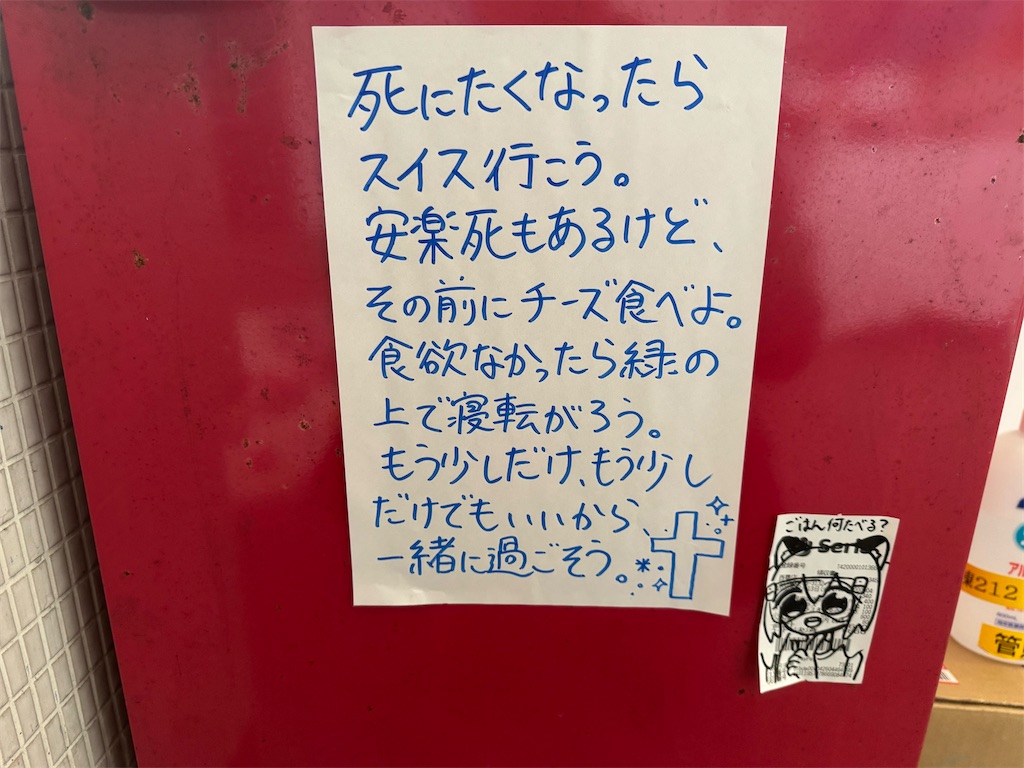 死にたくなったら
スイス行こう。
安楽死もあるけど、
その前にチーズ食べよ。
食欲なかったら緑の
上で寝転がろう。
もう少しだけ、もう少し
だけでもいいから、
一緒に過ごそう。
ごはん何たべる?
Seri
アル
212
管